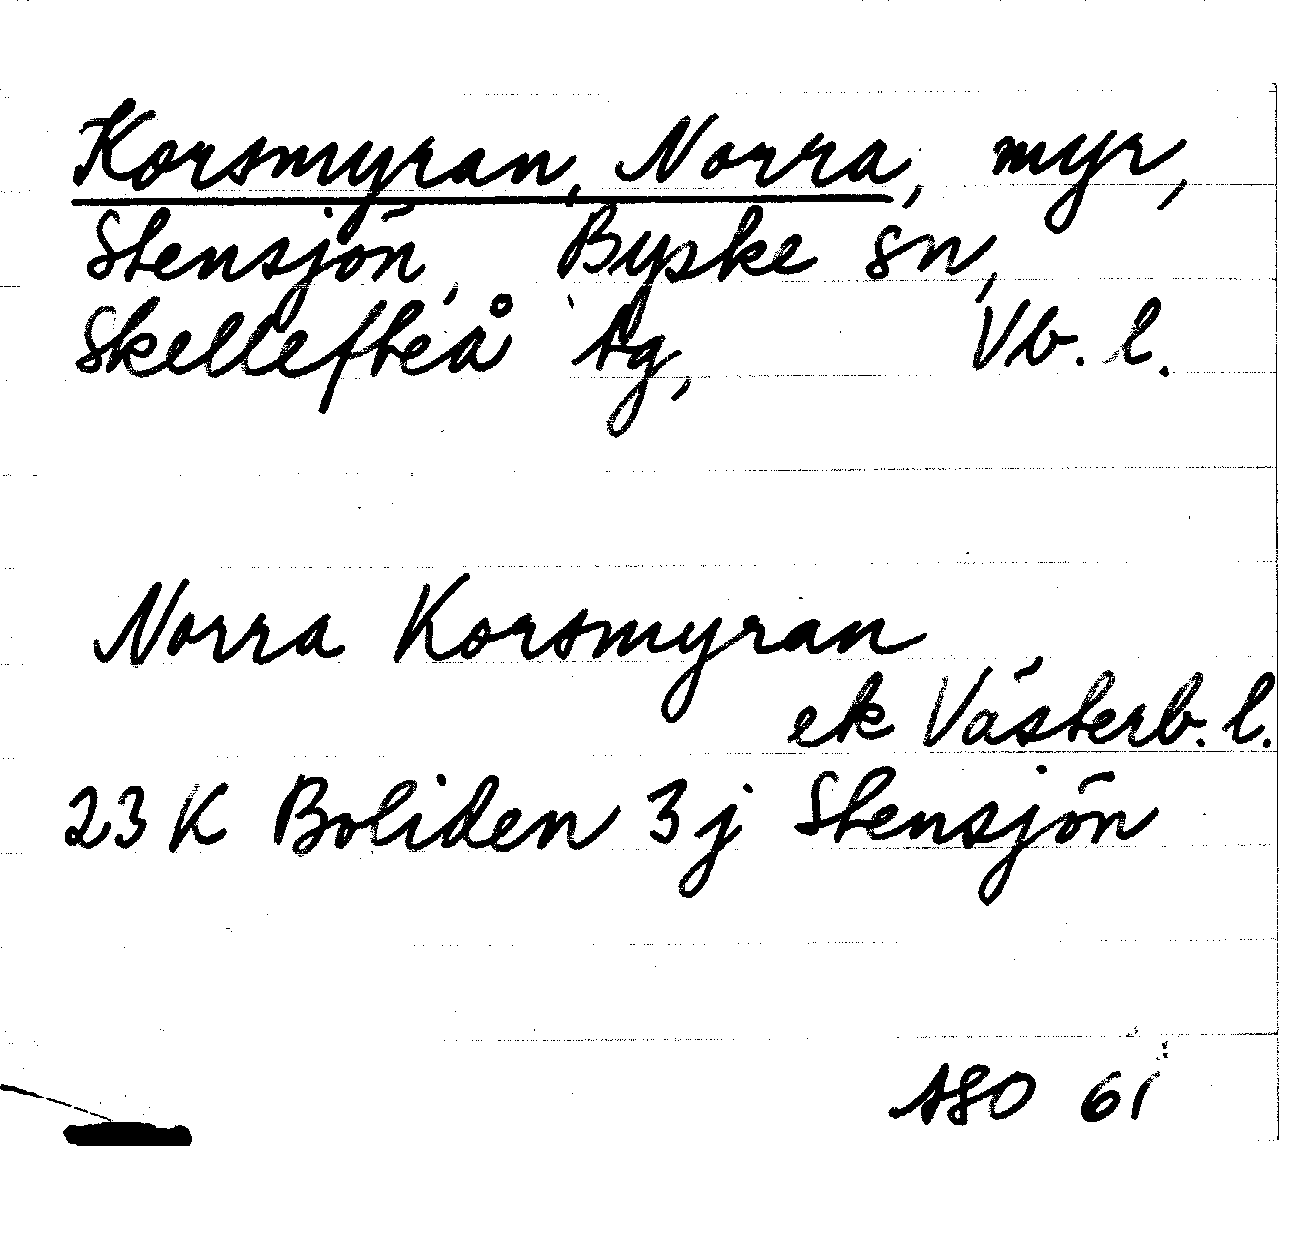 Korsmyran, Norra, myr,
Stensjön, Byske sn,
Skellefteå tg, Vb. l.
Norra Korsmyran
ek Västerb. l.
23 K Boliden 3 j Stensjön
ASO 61